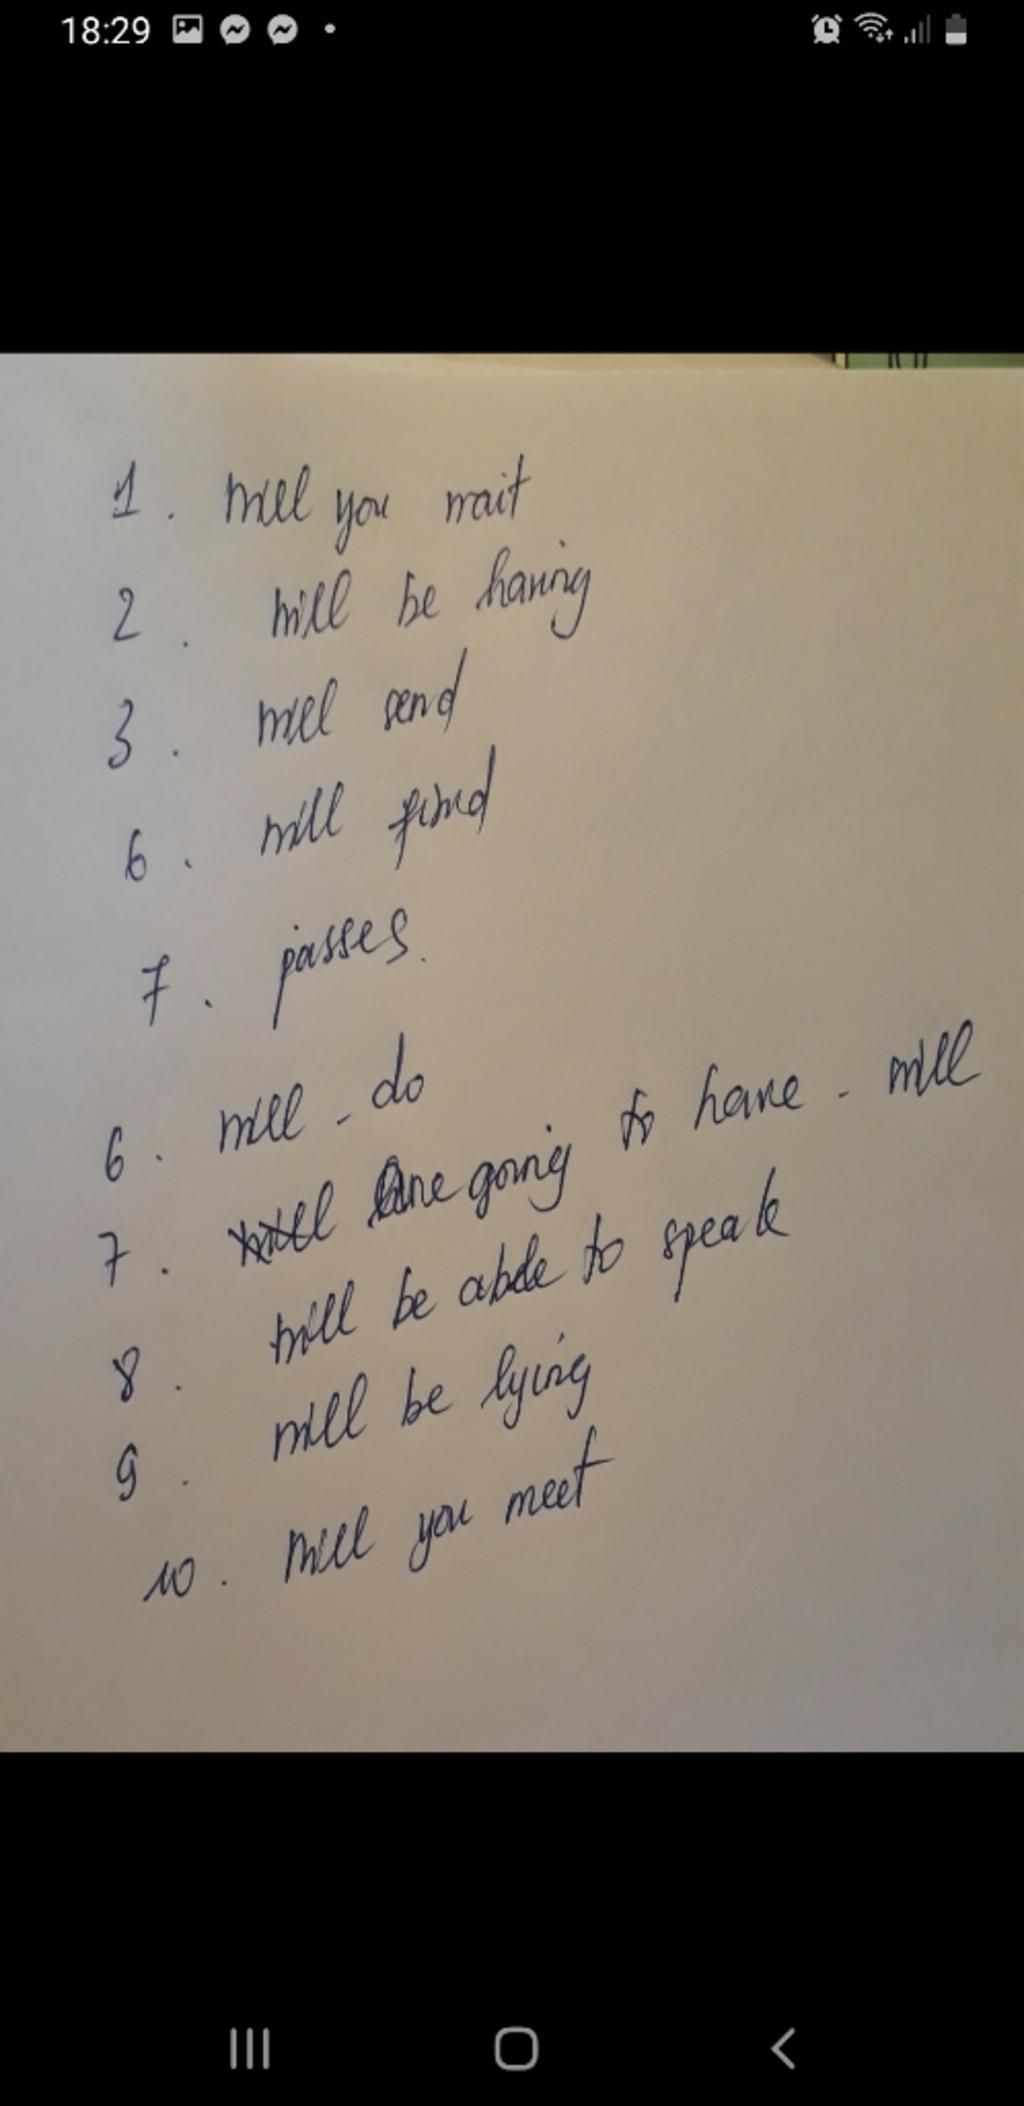 18:29
1. Will you wait
2. Will be having
3. will send
6. will find
7. passes.
6. will - do
7. will are going to have - will
8. will be able to speak
9. will be lying
10. Will you meet